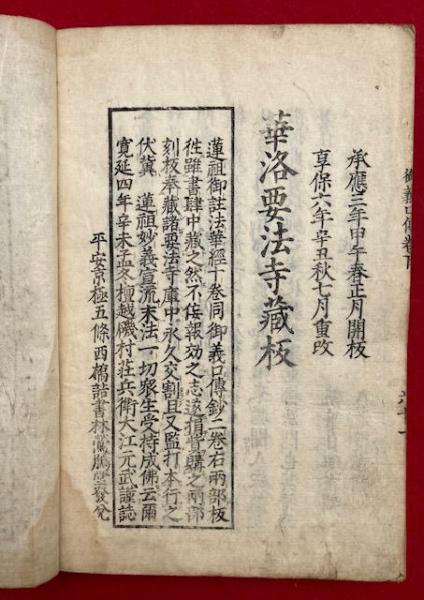 御義口傳卷下
承應三年甲午春正月開板
享保六年辛丑秋七月重改
華洛要法寺藏板
蓮祖御註法華經十卷同御義口傳鈔二卷右兩部板
徃雖書肆中藏之然不佞報効之志遂捐貲購之兩部
刻板奉藏諸要法寺庫中永久交割且又監打本行之
伏冀 蓮祖妙義宣流末法一切衆生受持成佛云爾
寛延四年辛未孟冬檀越磯村莊兵衛大江元武謹誌
平安京極五條西橋詰書林 發兌